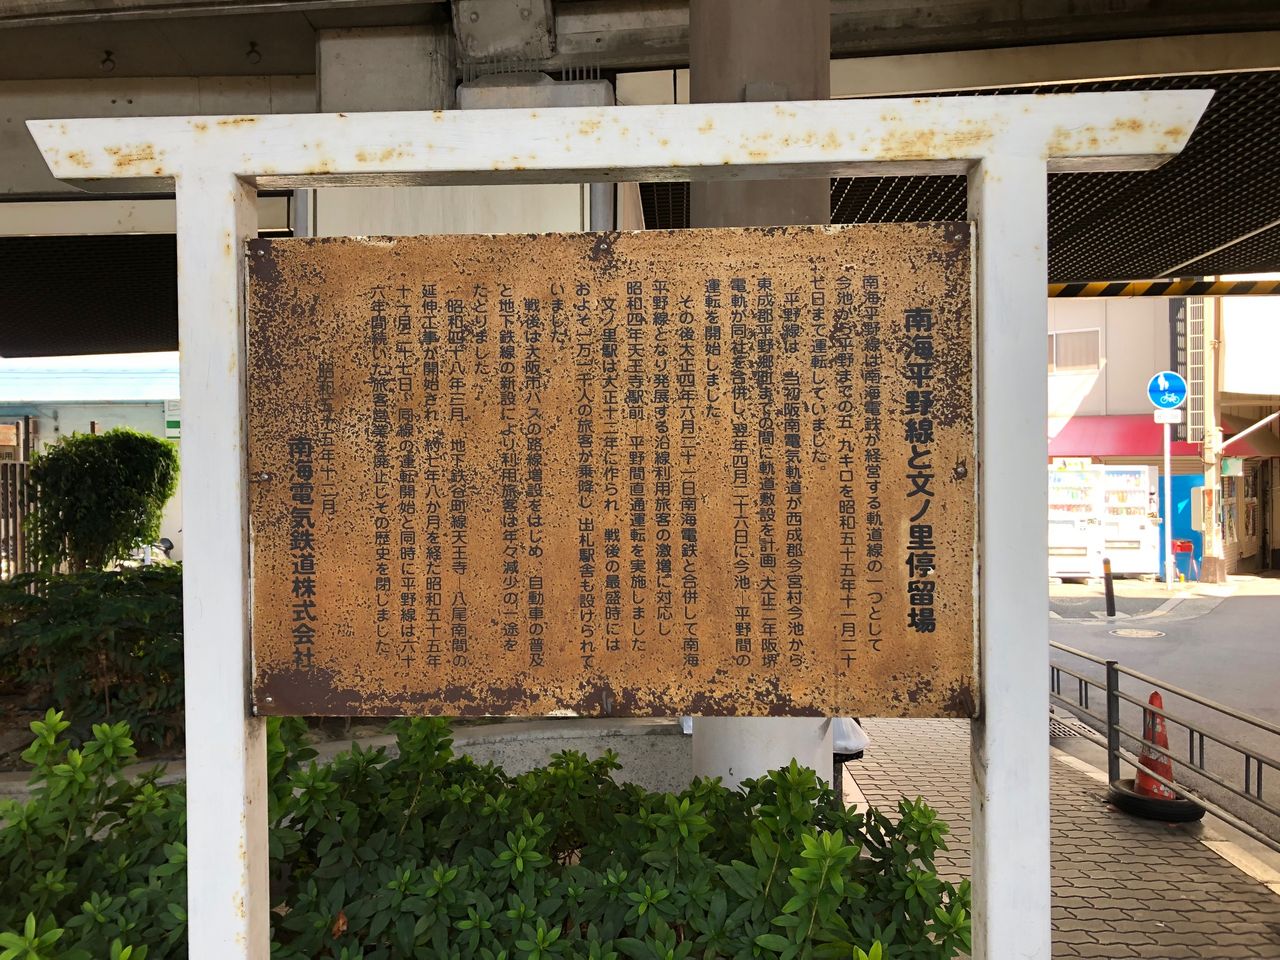 南海平野線と文ノ里停留場
南海平野線は南海電鉄が経営する軌道線の一つとして
今池から平野までの五.九キロを昭和五十五年十一月二十
七日まで運転していました。
平野線は、当初阪南電気軌道が西成郡今宮村今池から
東成郡平野郷町までの間に軌道敷設を計画 大正二年阪堺
電軌が同社を合併し、翌年四月二十六日に今池―平野間の
運転を開始しました。
その後大正四年六月二十一日南海電鉄と合併して南海
平野線となり発展する沿線利用旅客の激増に対応し
昭和四年天王寺駅前―平野間直通運転を実施しました
文ノ里駅は大正十二年に作られ、戦後の最盛時には
およそ一万二千人の旅客が乗降し 出札駅舎も設けられて
いました。
戦後は大阪市バスの路線増設をはじめ、自動車の普及
と地下鉄線の新設により利用旅客は年々減少の一途を
たどりました。
昭和四十八年 月、地下鉄谷町線天王寺―八尾南間の
延伸工事が開始され、約七年八か月を経た昭和五十五年
十一月二十七日、同線の運転開始と同時に平野線は六十
六年間続いた旅客営業を廃止しその歴史を閉じました。
昭和五十五年十二月
南海電気鉄道株式会社